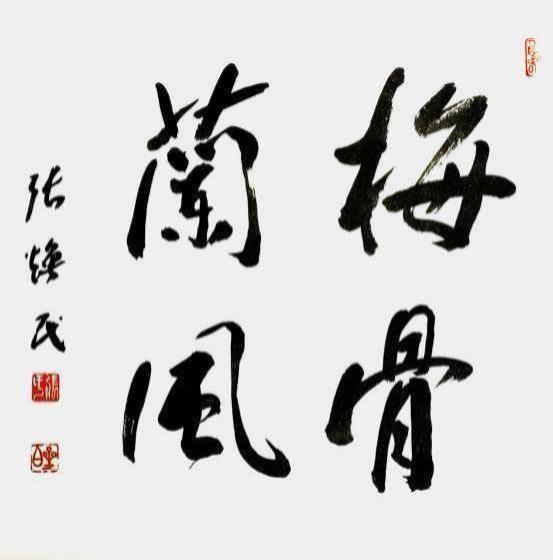 梅骨
蘭風
张焕民